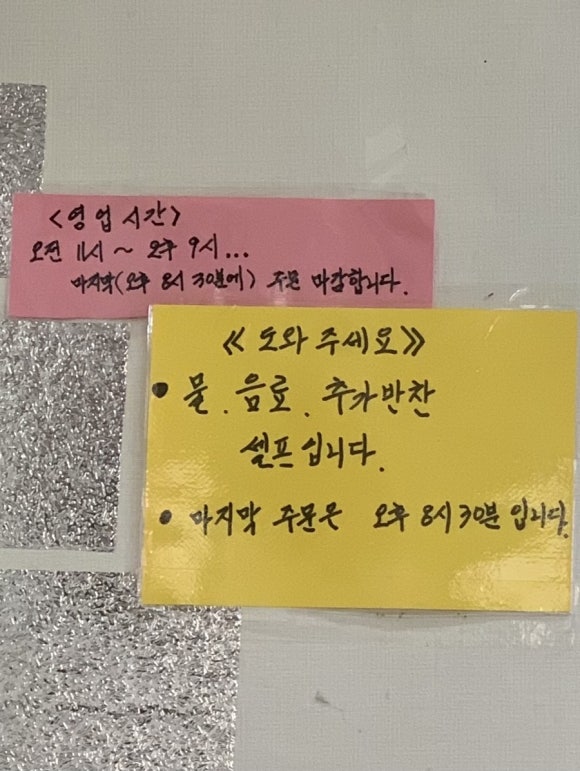 <영업시간>
오전 11시 ~ 오후 9시...
마지막(오후 8시 30분에) 주문 마감합니다.
《도와 주세요》
• 물, 음료, 추가반찬
셀프입니다.
• 마지막 주문은 오후 8시 30분 입니다.